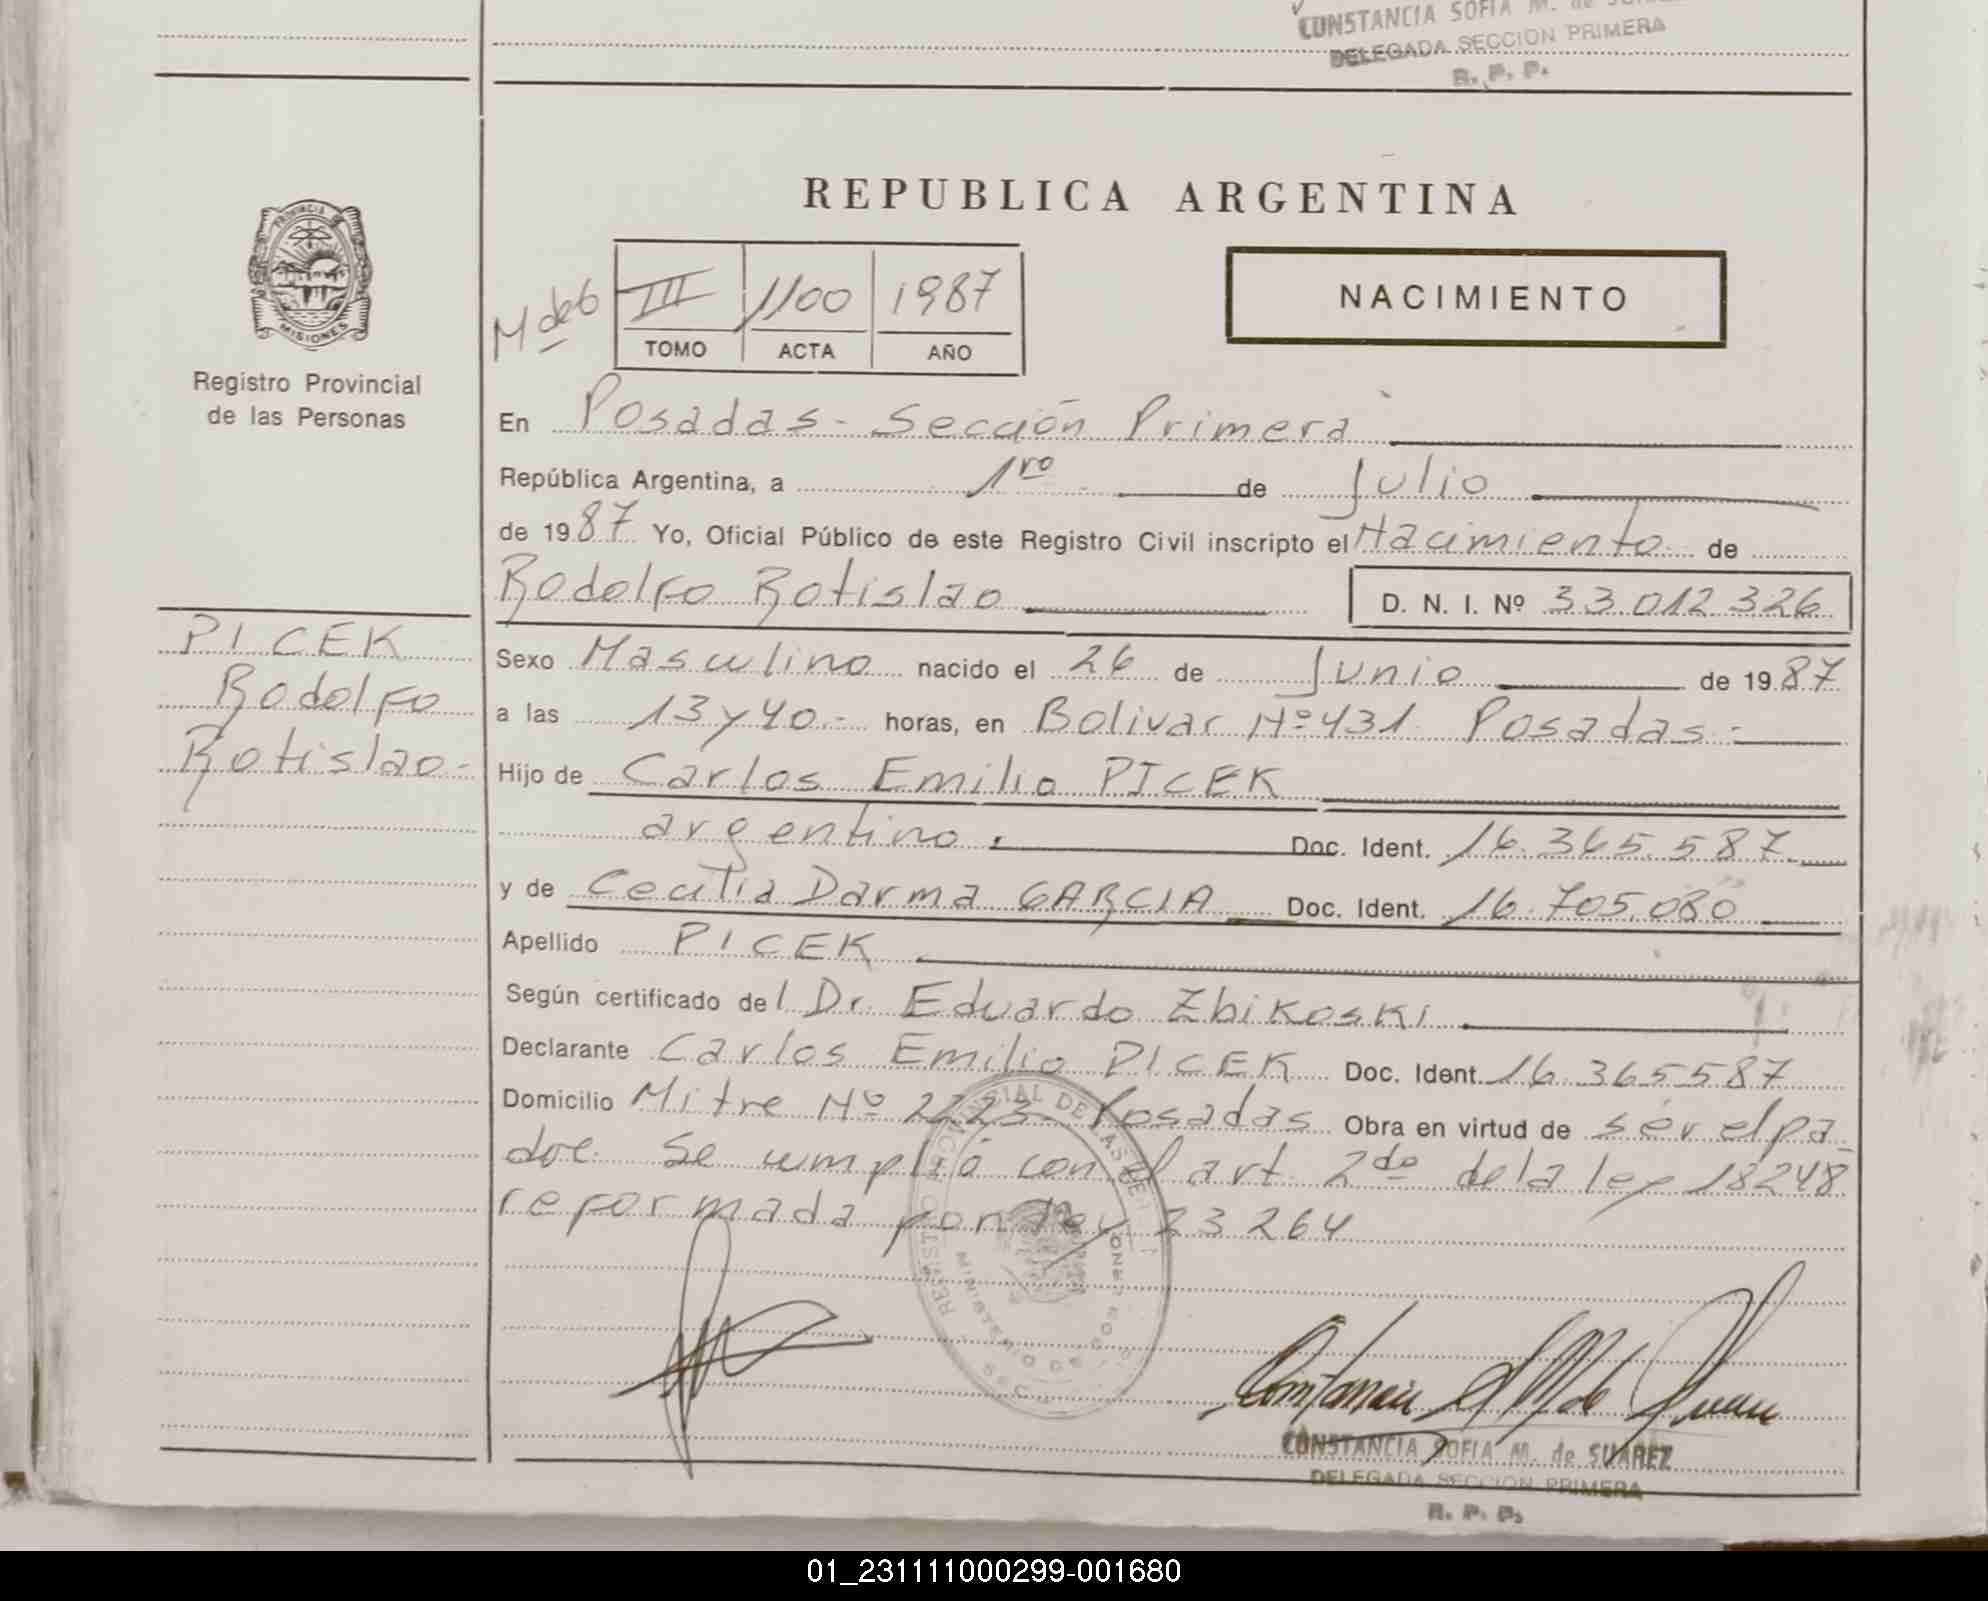 CONSTANCIA SOFIA M. de
DELEGADA SECCION PRIMERA
R. P. P.
REPUBLICA ARGENTINA
PROVINCIA DE
MISIONES
Registro Provincial
de las Personas
M de6
III 1100 1987
TOMO ACTA AÑO
NACIMIENTO
En Posadas - Sección Primera
República Argentina, a 1ro de Julio
de 1987 Yo, Oficial Público de este Registro Civil inscripto el Nacimiento de
Rodolfo Rotislao D. N. I. Nº 33.012.326
PICEK
Rodolfo
Rotislao-
Sexo Masculino nacido el 26 de Junio de 1987
a las 13 y 40.- horas, en Bolivar Nº 431. Posadas.-
Hijo de Carlos Emilio PICEK
argentino. Doc. Ident. 16.365.587.
y de Cecilia Darma GARCIA Doc. Ident. 16.705.080
Apellido PICEK
Según certificado del Dr. Eduardo Zbikoski
Declarante Carlos Emilio PICEK Doc. Ident. 16.365587
Domicilio Mitre Nº 2223 Posadas Obra en virtud de ser el pa
dre. Se cumplió con el art. 2do de la ley 18248
reformada por ley 23.264
REGISTRO PROVINCIAL DE LAS
MINISTERIO DE
CONSTANCIA SOFIA M. de SUAREZ
DELEGADA SECCION PRIMERA
R. P. P.
01_231111000299-001680